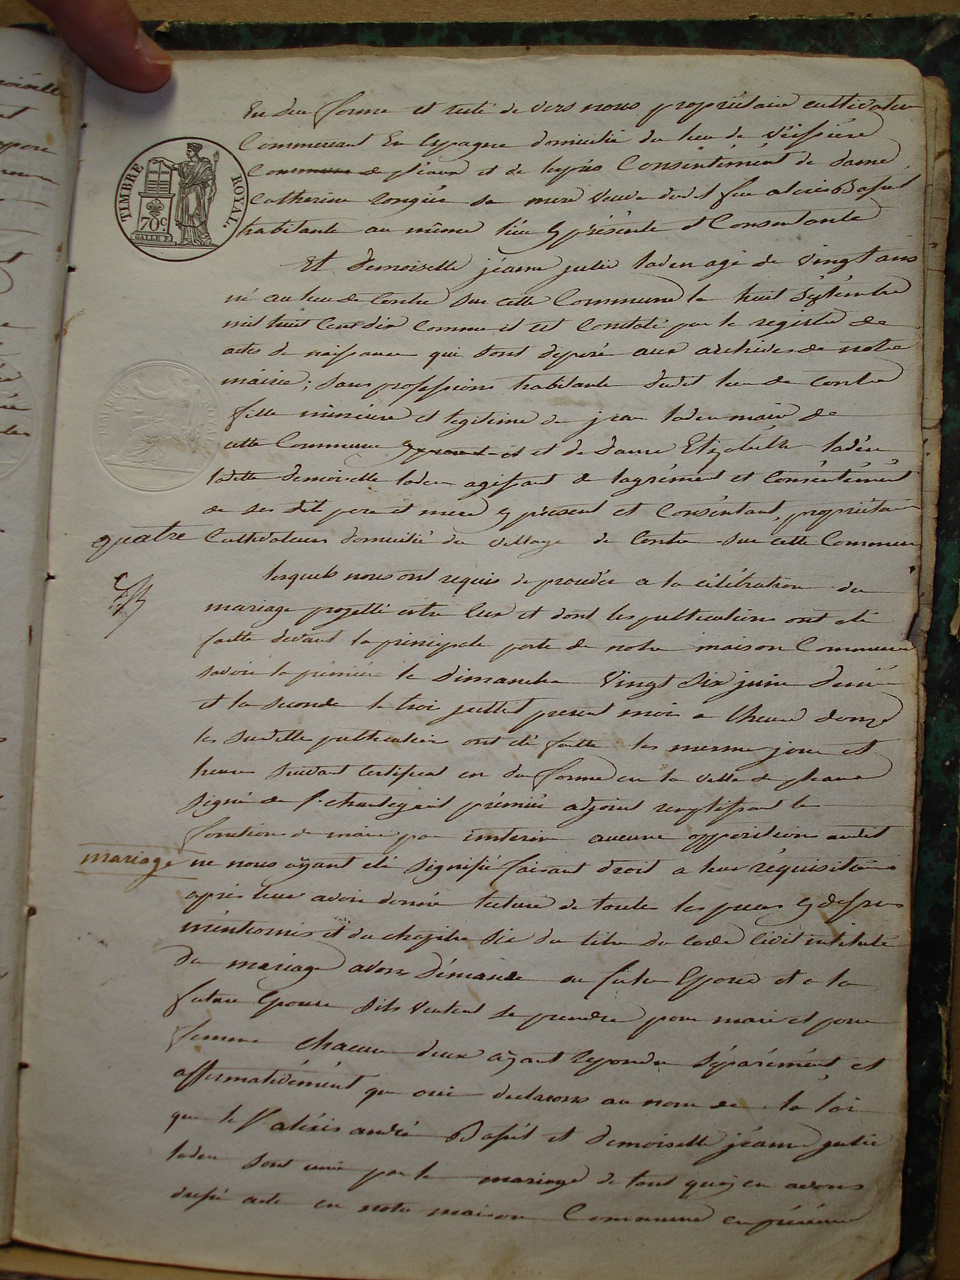 TIMBRE ROYAL.
70c
En due forme et resté de vers nous propriétaire cultivateur
Commercant En Espagne domicilié du lieu de Veissière
Commune de pleaux et de lexprés Consentément de dame
Catherine longúes sa mere veuve dudit feu alexis Bafsét
habitante au même lieu y présente et Consentante
Et demoiselle jeanne julie laden agé de vingt ans
né au lieu de Contre sur cette Commune le huit Séptembre
mil huit Cent dix comme il est Constaté par le registre de
actes de naissance qui sont deposé aux archives de notre
mairie; sans professions habitante dudit lieu de Contre
fille mineure et legitime de jean laden maire de
cette Commune et de dame Elizabeth
ladite demoiselle laden agifsant de lagrément et Conséntément
de ses dit pere et mere y présent et Conséntant, propriétaire
quatre
Cultivateurs domicilié du village de Contre sur cette Commune
lesquels nous ont requis de procédér a la célébration du
mariage projetté entre Eux et dont les publications ont été
faitte devant la principale porte de notre maison Commune
savoir la prémière le dimanche Vingt Six juin dernié
et la seconde le trois juillet present mois a lheure de onze
les Susditte publication ont été faitte les meme jour et
heure Suivant Certificat en du forme en la ville de pleaux
Signé de premiér adjoint remplifsant la
fonction de maire par interim aucune opposition audit
mariage
ne nous ayant été Signifié faisant droit a leur réquisition
aprés leur avoir donné lecture de toute les pieces y defsus
méntionnés et du chapitre Six du titre du code Civil intitulé
Du mariage avons démandé au futur Epoux et a la
future Epouse Sils veulent se prendre pour mari et pour
femme chacun deux ayant repondu Séparémént et
affirmativémént que oui declarons au nom de la loi
que le Sr aléxis andré Bafsét et demoiselle jéanne julie
laden sont unis par le mariage de tout quoi en avons
drefsé acte en notre maison Commune en présénce